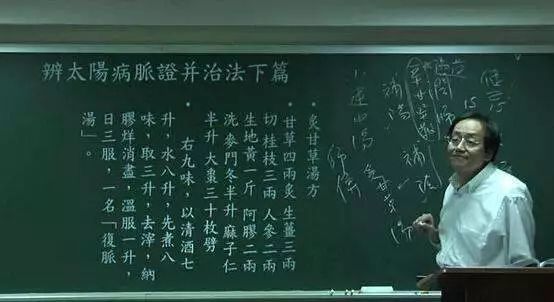 辨太陽病脈證并治法下篇
• 炙甘草湯方
甘草四兩炙 生薑三兩
切 桂枝三兩 人參二兩
生地黃一斤 阿膠二兩
洗 麥門冬半升 麻子仁
半升 大棗三十枚劈
• 右九味，以清酒七
升，水八升，先煮八
味，取三升，去滓，納
膠烊消盡，溫服一升，
日三服，一名「復脈
湯」。
15
炙甘草湯
小建中湯